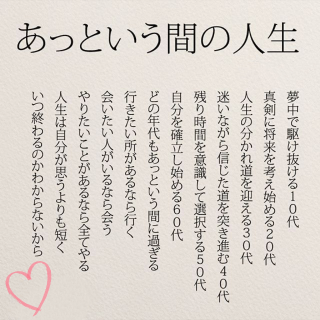 あっという間の人生
夢中で駆け抜ける10代
真剣に将来を考え始める20代
人生の分かれ道を迎える30代
迷いながら信じた道を突き進む40代
残り時間を意識して選択する50代
自分を確立し始める60代
どの年代もあっという間に過ぎる
行きたい所があるなら行く
会いたい人がいるなら会う
やりたいことがあるなら全てやる
人生は自分が思うよりも短く
いつ終わるのかわからないから